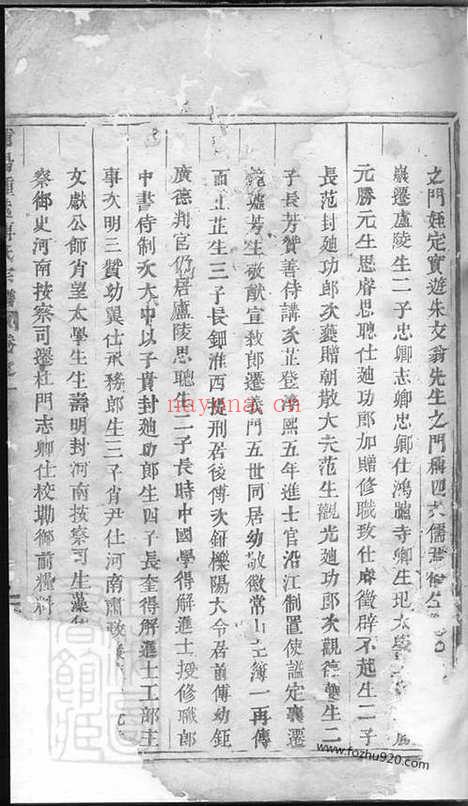 之門姪定實遊朱文翁先生之門稱四大儒
襄遷廬陵生二子忠卿志卿忠卿仕鴻臚寺卿生
元勝元生思睿思聰仕廸功郎加贈修職致仕麻徵辟不起生二子
長范封廸功郎次藝贈朝散大夫范生觀光廸功郎次觀德藝生二
子長芳贊善侍講次芷登淳熙五年進士官沿江制置使謚定襄遷
範墟芳生敬猷宣教郎遷義門五世同居幼敬徽常山主簿一再傳
而止芷生三子長鉀淮西提刑居後傅次鈕櫟陽大令居前傅幼鉅
廣德判官仍居廬陵思聰生二子長時中國學得解進士授修職郎
中書侍制次大中以子貴封廸功郎生四子長奎得解進士工部主
事次明三贊幼翼仕承務郎生二子肖尹仕河南肅政
文獻公師肖望太學生生壽明封河南按察司生藻
察御史河南按察司遷杜門志卿仕校勘御前糧料
nayona.cn
www.fozhu920.com